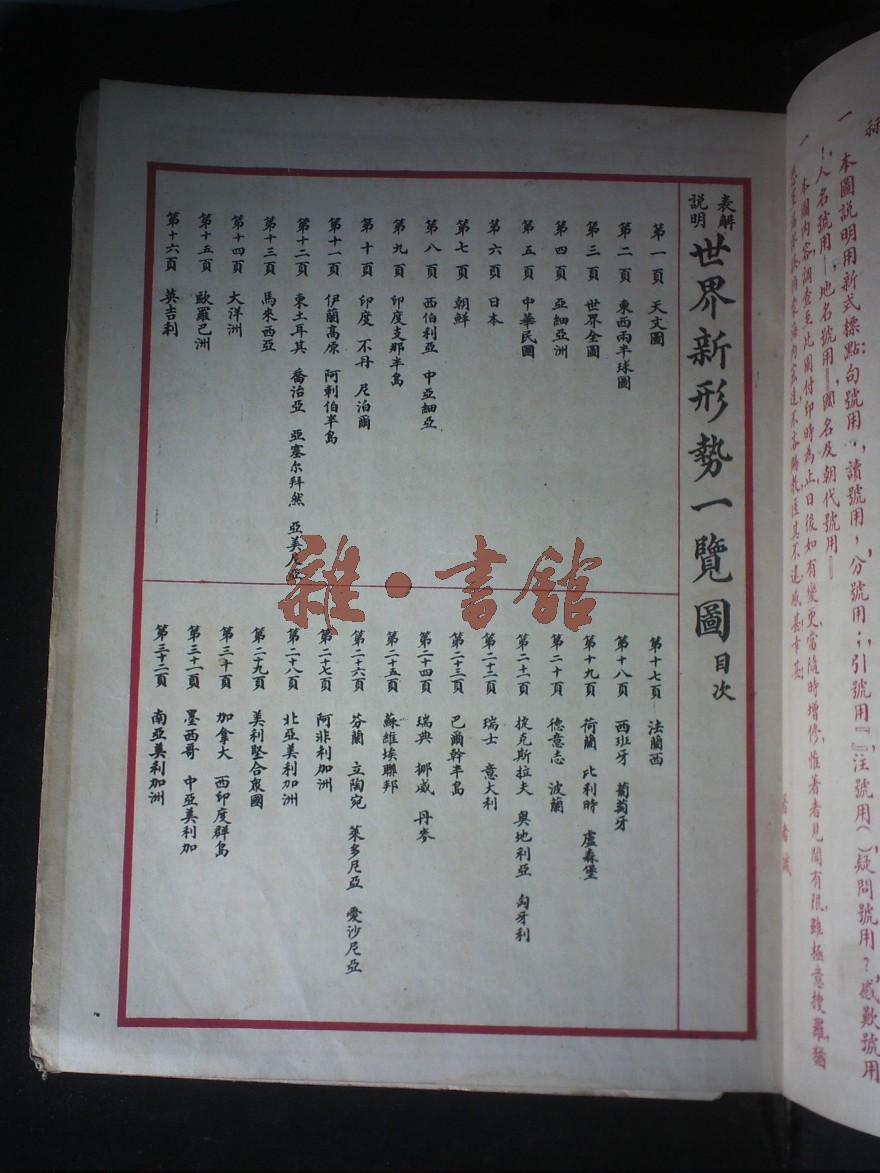 表解說明 世界新形勢一覽圖 目次
第一頁 天文圖
第二頁 東西兩半球圖
第三頁 世界全圖
第四頁 亞細亞洲
第五頁 中華民國
第六頁 日本
第七頁 朝鮮
第八頁 西伯利亞 中亞細亞
第九頁 印度支那半島
第十頁 印度 不丹 尼泊爾
第十一頁 伊蘭高原 阿剌伯半島
第十二頁 東土耳其 喬治亞 亞塞尔拜然 亞美尼亞
第十三頁 馬來西亞
第十四頁 大洋洲
第十五頁 歐羅巴洲
第十六頁 英吉利
第十七頁 法蘭西
第十八頁 西班牙 葡萄牙
第十九頁 荷蘭 比利時 盧森堡
第二十頁 德意志 波蘭
第二十一頁 捉克斯拉夫 奧地利亞 匈牙利
第二十二頁 瑞士 意大利
第二十三頁 巴爾幹半島
第二十四頁 瑞典 挪威 丹麥
第二十五頁 蘇維埃聯邦
第二十六頁 芬蘭 立陶宛 萊多尼亞 愛沙尼亞
第二十七頁 阿非利加洲
第二十八頁 北亞美利加洲
第二十九頁 美利堅合衆國
第三十頁 加拿大 西印度群島
第三十一頁 墨西哥 中亞美利加
第三十二頁 南亞美利加洲
雜·書館
一 本圖説明用新式標點句號用。讀號用，分號用；引號用『』注號用（）疑問號用？感歎號用
！人名號用—地名號用＝國名及朝代號用
一 本圖內容調查至此圖付印時為止日後如有變更當隨時增修惟著者見聞有限雖極意搜羅猶
著者識